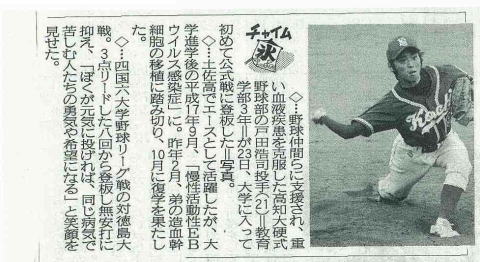 チャイム
氷
◇…野球仲間らに支援され、重
い血液疾患を克服した高知大硬式
野球部の戸田浩司投手(21)=教育
学部3年=が23日、大学に入って
初めて公式戦に登板した=写真。
◇…土佐高でエースとして活躍したが、大
学進学後の平成17年9月、「慢性活動性EB
ウイルス感染症」に。昨年2月、弟の造血幹
細胞の移植に踏み切り、10月に復学を果たし
た。
◇…四国六大学野球リーグ戦の対徳島大
戦。3点リードした八回から登板し無安打に
抑え、「ぼくが元気に投げれば、同じ病気で
苦しむ人たちの勇気や希望になる」と笑顔を
見せた。
Kochi